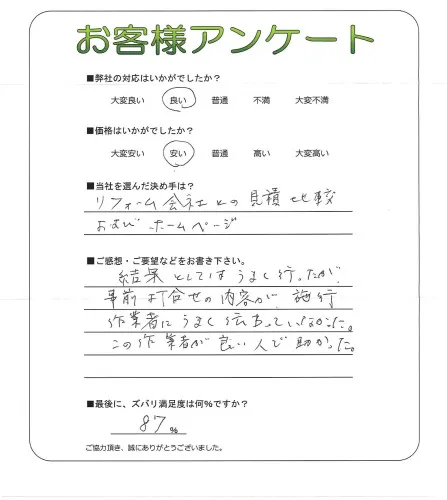 お客様アンケート
■弊社の対応はいかがでしたか?
大変良い 良い 普通 不満 大変不満
■価格はいかがでしたか?
大変安い 安い 普通 高い 大変高い
■当社を選んだ決め手は?
リフォーム会社との見積比較
およびホームページ
■ご感想・ご要望などをお書き下さい。
結果としてはうまく行ったが
事前打合せの内容が施行
作業者にうまく伝わっていなかった。
この作業者が良い人で助かった。
■最後に、ズバリ満足度は何%ですか?
87%
ご協力頂き、誠にありがとうございました。